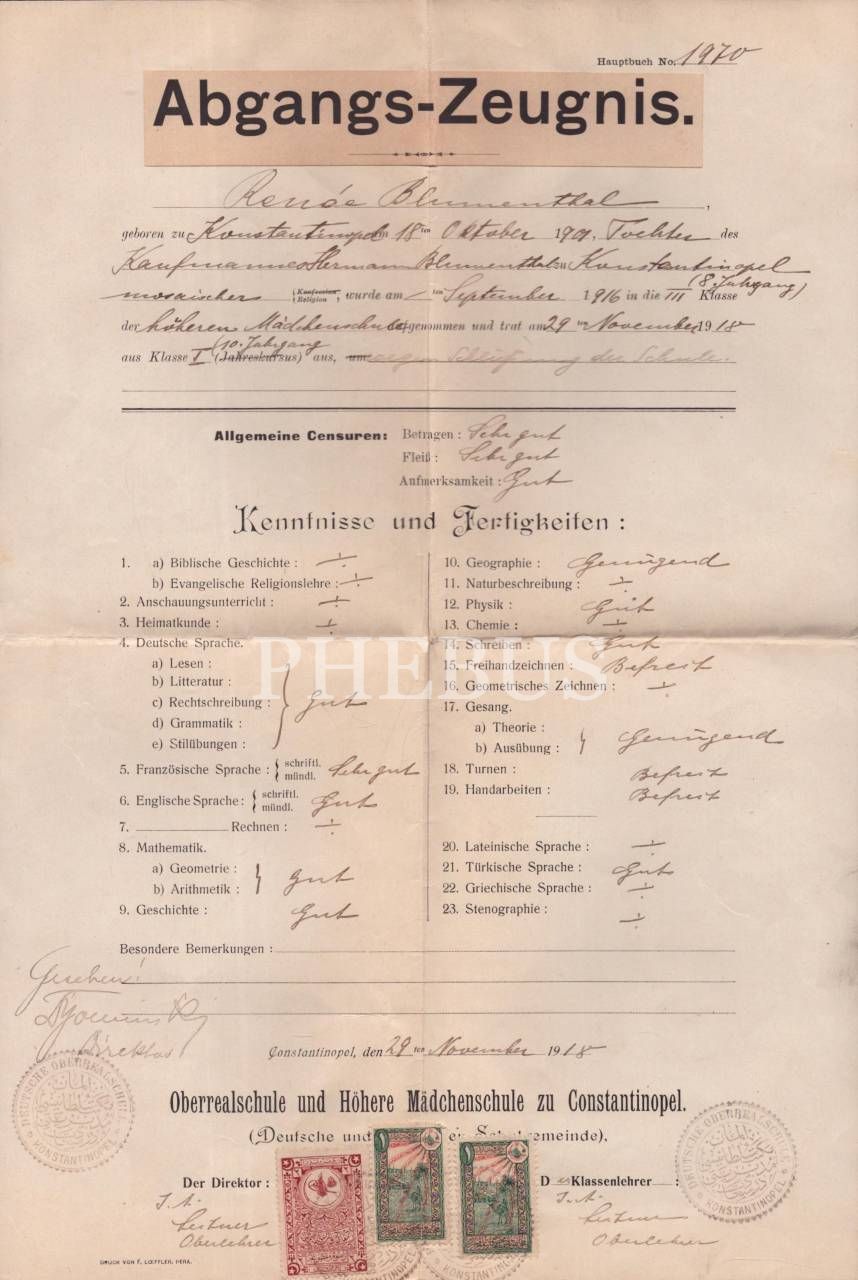 Hauptbuch No. 1970
Abgangs-Zeugnis.
Renée Blumenthal,
geboren zu Konstantinopel 18ten Oktober 1901, Tochter des
Kaufmannes Hermann Blumenthal zu Konstantinopel
(8. Jahrgang)
mosaischer (Konfession Religion), wurde am ten September 1916 in die III Klasse
der höheren Mädchenschule aufgenommen und trat am 29ten November 1918
(10. Jahrgang
aus Klasse I (Jahreskursus) aus, um wegen Schließung der Schule.
Allgemeine Censuren: Betragen: Sehr gut
Fleiß: Sehr gut
Aufmerksamkeit: Gut
Kenntnisse und Fertigkeiten:
1. a) Biblische Geschichte: ÷
b) Evangelische Religionslehre: ÷
2. Anschauungsunterricht: ÷
3. Heimatkunde: ÷
4. Deutsche Sprache.
a) Lesen:
b) Litteratur:
c) Rechtschreibung: Gut
d) Grammatik:
e) Stilübungen:
5. Französische Sprache: schriftl. mündl. Sehr gut
6. Englische Sprache: schriftl. mündl. Gut
7. Rechnen: ÷
8. Mathematik.
a) Geometrie:
b) Arithmetik: gut
9. Geschichte: Gut
10. Geographie: Genügend
11. Naturbeschreibung: ÷
12. Physik: Gut
13. Chemie: ÷
14. Schreiben: Gut
15. Freihandzeichnen: Befreit
16. Geometrisches Zeichnen: ÷
17. Gesang.
a) Theorie:
b) Ausübung: Genügend
18. Turnen: Befreit
19. Handarbeiten: Befreit
20. Lateinische Sprache: ÷
21. Türkische Sprache: Gut
22. Griechische Sprache: ÷
23. Stenographie: ÷
PHEBUS
Besondere Bemerkungen:
Gesehen!
Direktor
Constantinopel, den 29ten November 1918
Oberrealschule und Höhere Mädchenschule zu Constantinopel.
(Deutsche und Schulgemeinde).
DEUTSCHE OBERREALSCHULE KONSTANTINOPEL
DEUTSCHE OBERREALSCHULE KONSTANTINOPEL
Der Direktor:
I. A.
Leitner
Oberlehrer
Der Klassenlehrer:
I. A.
Leitner
Oberlehrer
DRUCK VON F. LOEFFLER, PERA.